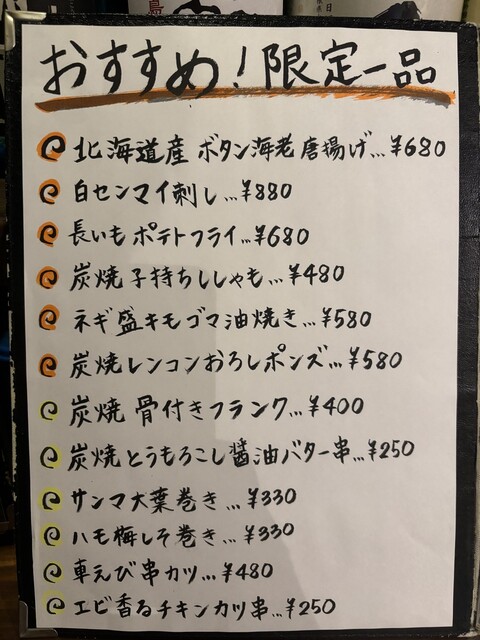 おすすめ!限定一品
北海道産 ボタン海老 唐揚げ...¥680
白センマイ刺し...¥880
長いもポテトフライ...¥680
炭焼 子持ちししゃも...¥480
ネギ盛キモゴマ油焼き...¥580
炭焼レンコンおろしポンズ...¥580
炭焼 骨付きフランク...¥400
炭焼とうもろこし醤油バター串...¥250
サンマ大葉巻き...¥330
ハモ梅しそ巻き...¥330
車えび串カツ...¥480
エビ香るチキンカツ串...¥250